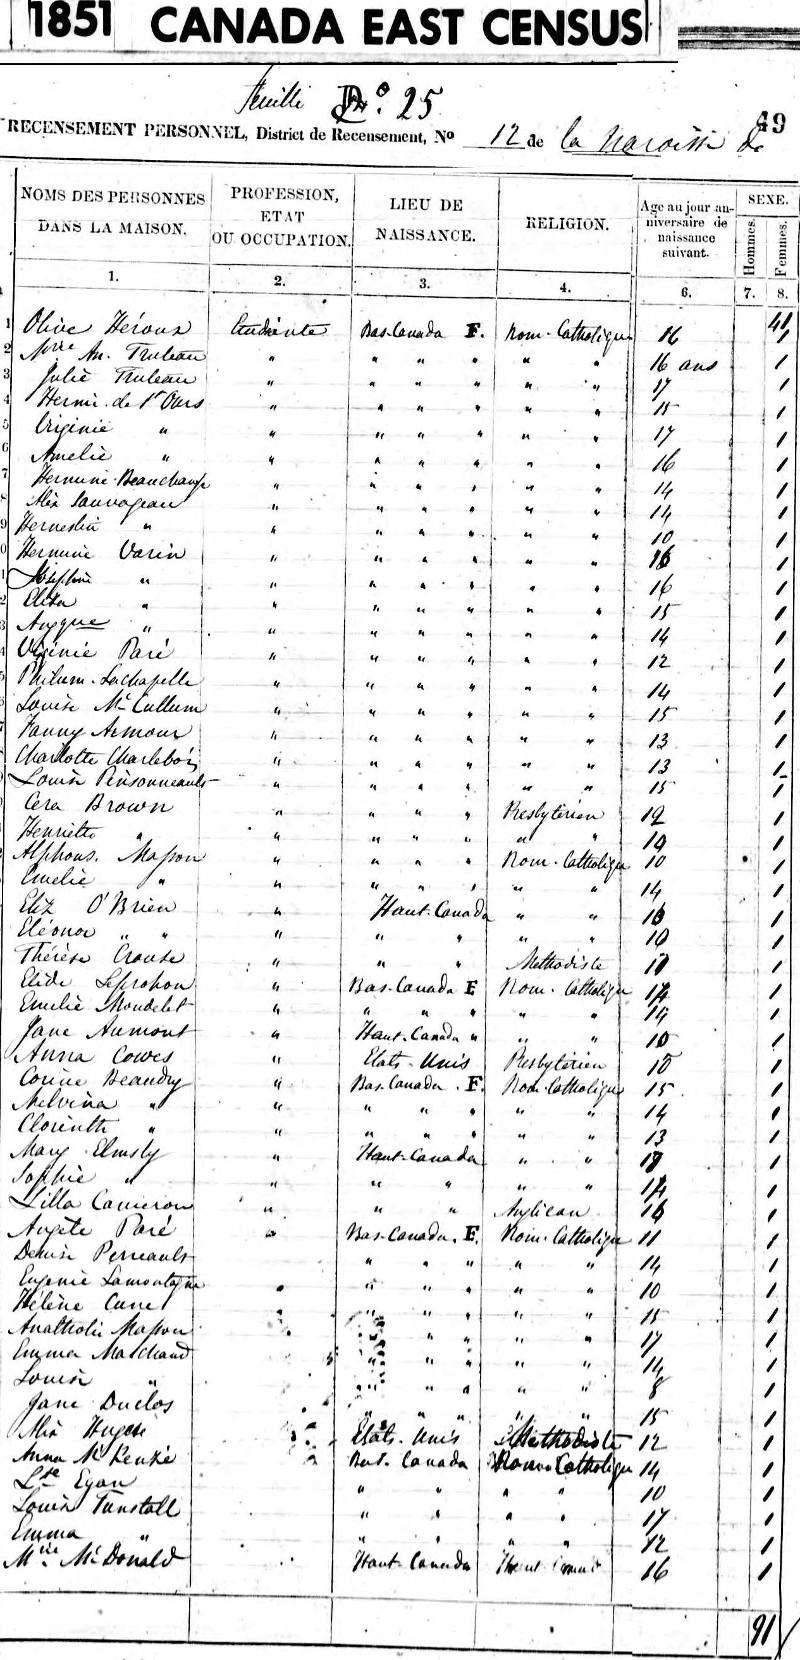 1851 CANADA EAST CENSUS
feuille No. 25
49
RECENSEMENT PERSONNEL, District de Recensement, No 12 de la Paroisse de
NOMS DES PERSONNES DANS LA MAISON. PROFESSION, ETAT OU OCCUPATION. LIEU DE NAISSANCE. RELIGION. Age au jour anniversaire de naissance suivant. SEXE. Hommes. Femmes.
1. 2. 3. 4. 6. 7. 8.
41
1 Olive Héroux Etudiante Bas-Canada F. Rom-Catholique 16 1
2 Mrie An. Truteau " " " " " " 16 ans 1
3 Julie Truteau " " " " " " 17 1
4 Hermi. de St Ours " " " " " " 15 1
5 Virginie " " " " " " " 17 1
6 Amelie " " " " " " " 16 1
7 Hermine Beauchamp " " " " " " 14 1
8 Alix Sauvageau " " " " " " 14 1
9 Hernestin " " " " " " " 10 1
0 Hermine Varin " " " " " " 16 1
1 Josephine " " " " " " " 16 1
2 Eliza " " " " " " " 15 1
3 Augque " " " " " " " 14 1
4 Virginie Paré " " " " " " 12 1
5 Philum. Lachapelle " " " " " " 14 1
Louise Mc Cullum " " " " " " 15 1
7 Fanny Armour " " " " " " 13 1
Charlotte Charlebois " " " " " " 13 1
Louise Pinsonneault " " " " " " 15 1
Cera Brown " " " " Presbytérien 12 1
Henriette " " " " " " " 14 1
Alphons. Masson " " " " Rom-Catholique 10 1
Emelie " " " " " " " 14 1
Eliz O'Brien " Haut-Canada " " 16 1
Eléonor " " " " " " " 10 1
Thérèse Crouse " " " Methodiste 1
Elide Leprohon " Bas-Canada F Rom. Catholique 14 1
Emelie Mondelet " " " " " " 14 1
Jane Aumont " Haut-Canada " " " 1
Anna Cowes " Etats-Unis Presbytérien 1
Corine Beaudry " Bas-Canada F. Rom-Catholique 15 1
Melvina " " " " " " " 14 1
Clorinthe " " " " " " " 13 1
Mary Elmsly " Haut-Canada " " 1
Sophie " " " " " " 14 1
Lilla Cameron " " " Anglican 16 1
Angèle Paré " Bas-Canada. F. Rom-Catholique 11 1
Denise Perreault " " " " " 14 1
Eugenie Lamontagne " " " " " 10 1
Hélène Cune " " " " " 15 1
Anathalie Masson " " " " 17 1
Emma Marchand " " " " " 14 1
Louise " " " " " 8 1
Jane Duclos " " " " " 15 1
Alix Etats-Unis Methodiste 12 1
Anna Mc Kenzie Bas-Canada Rom-Catholique 14 1
Lse Egan " " " " 10 1
Louise Tunstall " " " " 17 1
Emma " " " " " 12 1
Mrie Mc Donald Haut-Canada 16 1
91